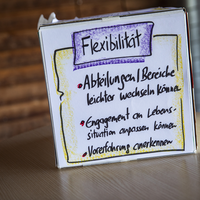 Flexibilität
Abteilungen/Bereiche
leichter wechseln können
Engagement an Lebens-
situation anpassen können
Vorerfahrung anerkennen